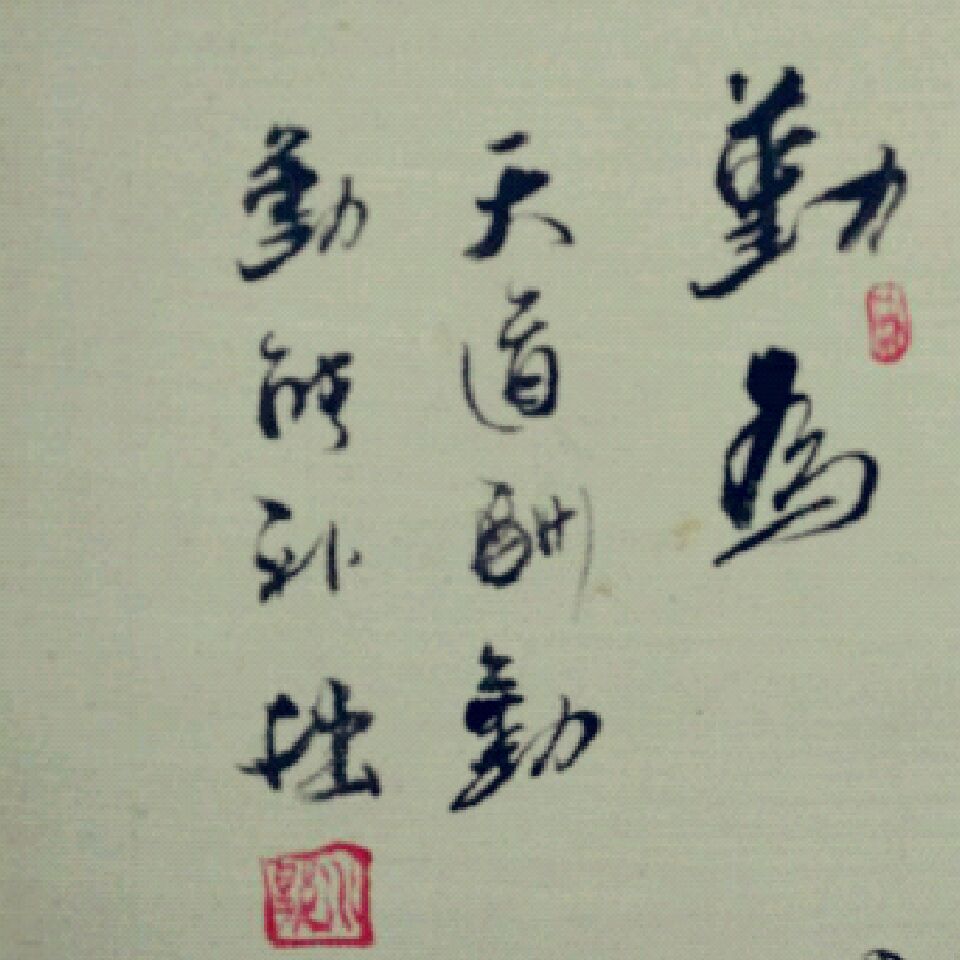 勤為
天道酬勤
勤能補拙